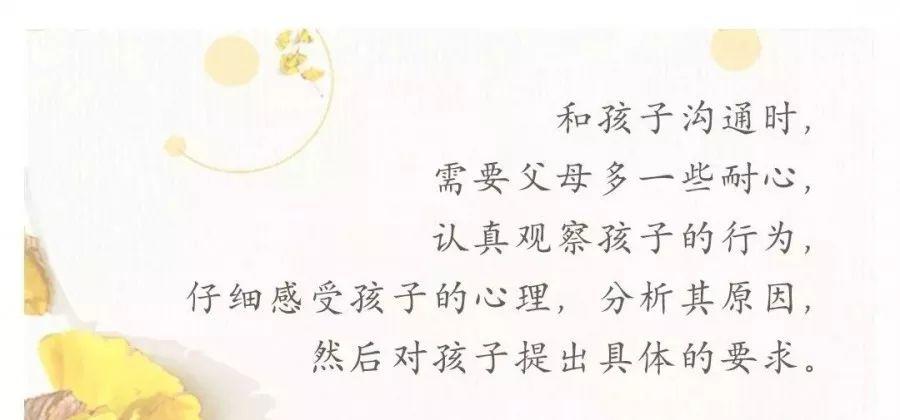 和孩子沟通时，
需要父母多一些耐心，
认真观察孩子的行为，
仔细感受孩子的心理，分析其原因，
然后对孩子提出具体的要求。